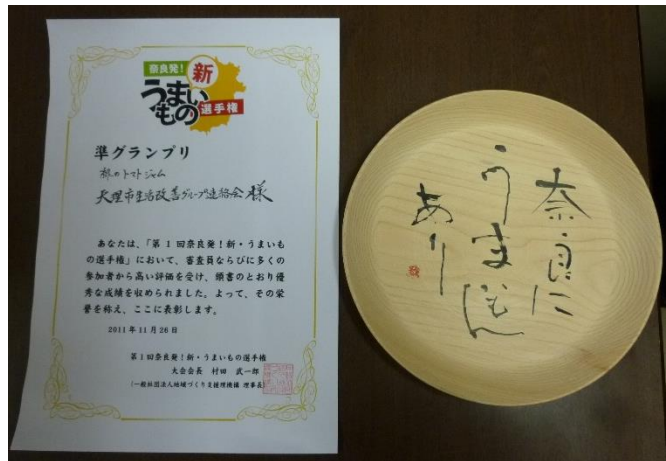 奈良発!
新
うまい
もの
選手権
準グランプリ
柿のトマトジャム
天理市生活改善グループ連絡会 様
あなたは、「第1回奈良発!新・うまいも
の選手権」において、審査員ならびに多くの
参加者から高い評価を受け、頭書のとおり優
秀な成績を収められました。よって、その栄
誉を称え、ここに表彰します。
2011年11月26日
第1回奈良発!新・うまいもの選手権
大会会長 村田 武一郎
(一般社団法人地域づくり支援機構 理事長)
奈良に
うまいもん
あり